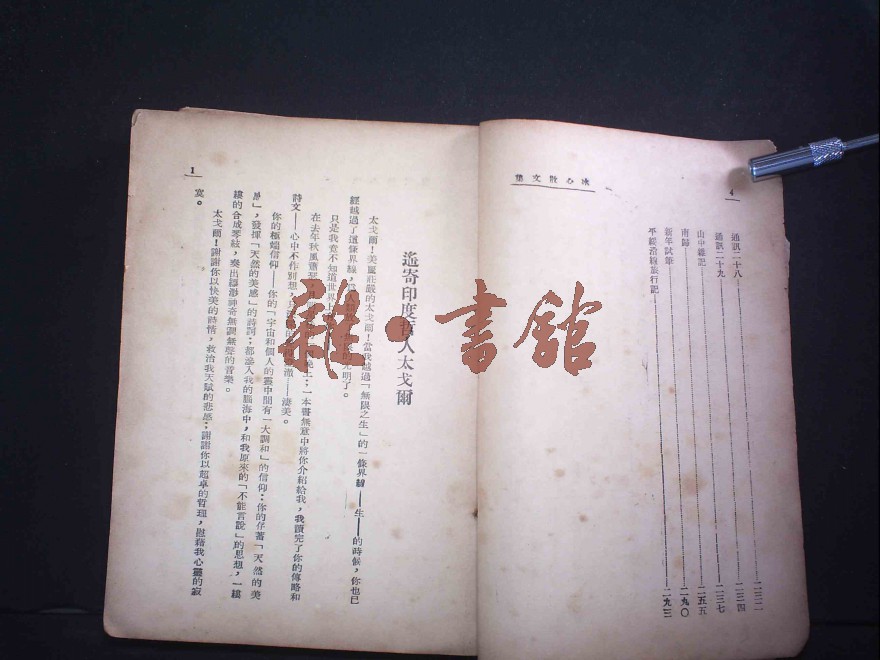 冰心散文集
4
通訊二十八
通訊二十九
山中雜記
南歸
新年試筆
平綏沿線旅行記
遙寄印度哲人太戈爾
太戈爾！美麗莊嚴的太戈爾！當我越過「無限之生」的一條界線——生——的時候，你也已
經越過了這條界線，為人類 光明了。
只是我竟不知道世界上
在去年秋風蕭瑟， 晚上：一本書無意中將你介紹給我，我讀完了你的傳略和
詩文——心中不作別想，只 澈——淒美。
你的極端信仰——你的「宇宙和個人的靈中間有一大調和」的信仰；你的存蓄「天然的美
感」，發揮「天然的美感」的詩詞；都滲入我的腦海中，和我原來的「不能言說」的思想，一縷
縷的合成琴絃，奏出縹渺神奇無調無聲的音樂。
太戈爾！謝謝你以快美的詩情，救治我天賦的悲感；謝謝你以超卓的哲理，慰藉我心靈的寂
寞。
1
雜·書館